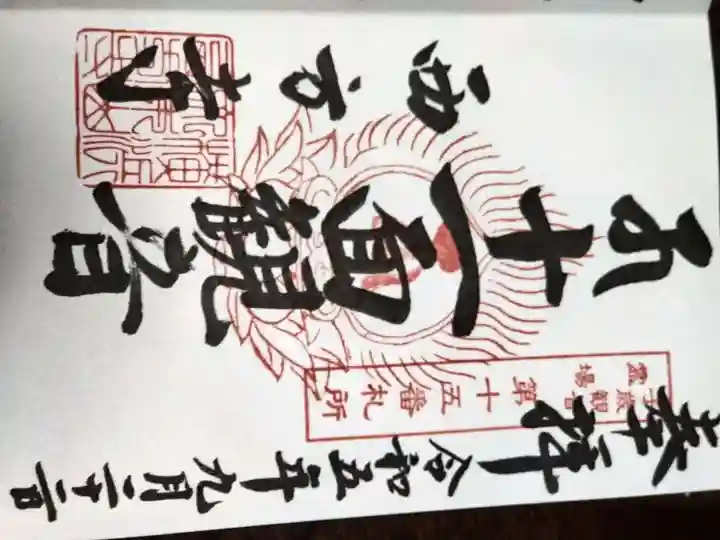 奉拝
令和五年九月二十日
子歳観音
霊場
第十五番札所
十一面観音
西方寺